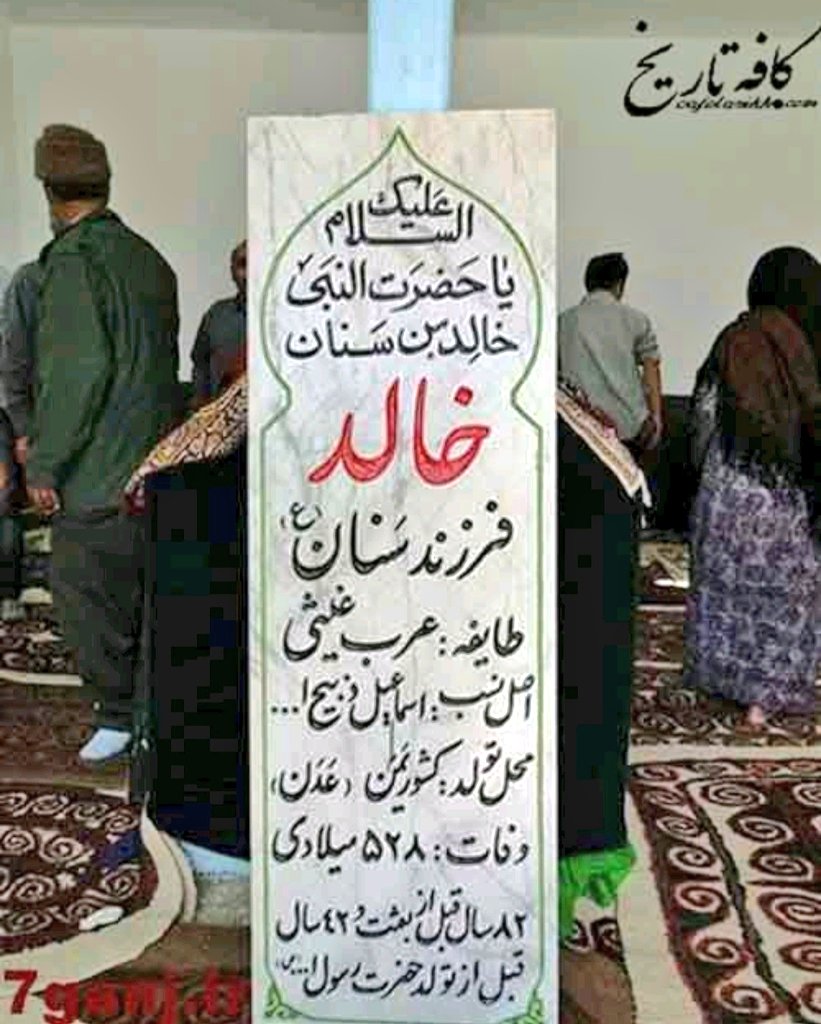 کافه تاریخ
cafetarikh.com
السلام علیک
یا حضرت النبی
خالد بن سنان
خالد
فرزند سنان (ع)
طایفه: عرب غلیثی
اصل نسب: اسماعیل ذبیح ا...
محل تولد: کشور یمن (عدن)
وفات: ۵۲۸ میلادی
۸۲ سال قبل از بعثت و ۴۲ سال
قبل از تولد حضرت رسول ا... (ص)
7ganj.ir